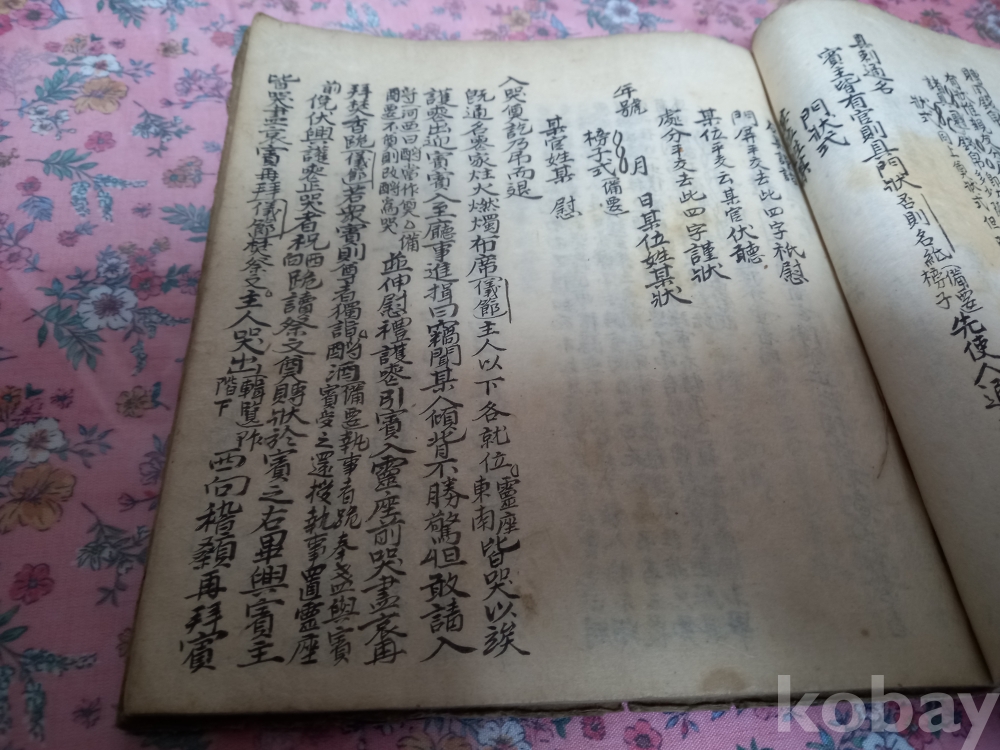 具刺通名
賓主皆有官則具門狀否則名紙 備要 榜子 先使人通
門狀式
某位姓某
門屏 平交去此四字 祗慰
某位 平交云某官 伏聽
處分 平交去此四字 謹狀
年號 月 日某位姓某狀
榜子式 備要
某官姓某 慰
入哭奠訖乃弔而退
旣通名喪家炷火燃燭布席 儀節 主人以下各就位 靈座東南 皆哭以俟
護喪出迎賓賓入至廳事進揖曰竊聞某人傾背不勝驚怛敢請入
並伸慰禮護喪引賓入靈座前哭盡哀再
拜焚香跪 儀節 若衆賓則尊者獨詣 酹酒 備要 執事者跪奉盞與賓
賓受之還授執事置靈座
前 俛伏興護喪止哭者祝 西向 跪讀祭文奠賻狀於賓之右畢興賓主
皆哭盡哀賓再拜 儀節 焚祭文 主人哭出 輯覽 阼階下 西向稽顙再拜賓
kobay